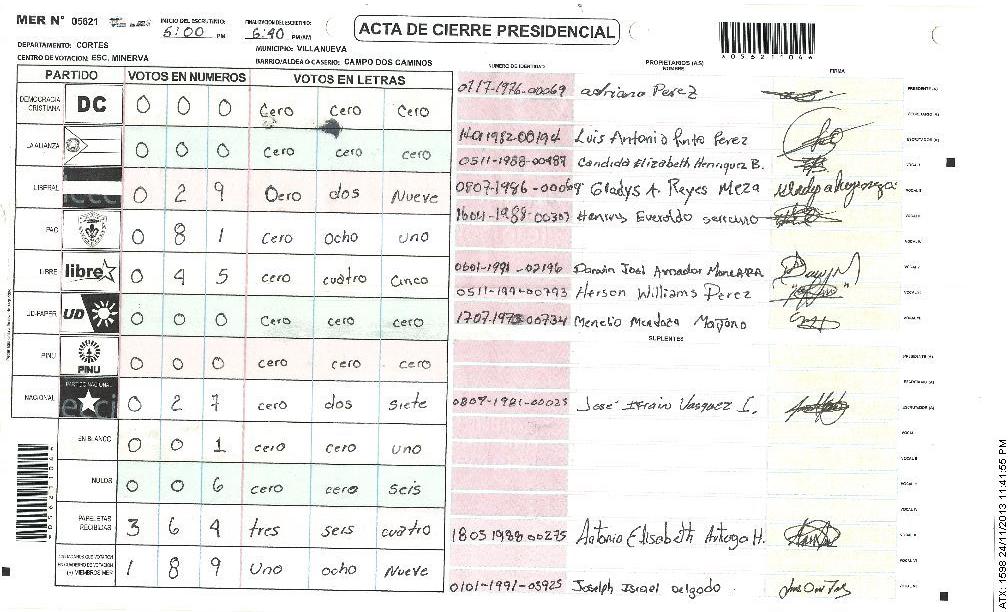 MER N° 05621
INICIO DEL ESCRUTINIO: 5:00 PM
FINALIZACION DEL ESCRUTINIO: 6:40 PM/AM
ACTA DE CIERRE PRESIDENCIAL
DEPARTAMENTO: CORTES
MUNICIPIO: VILLANUEVA
CENTRO DE VOTACION: ESC. MINERVA
BARRIO/ALDEA O CASERIO: CAMPO DOS CAMINOS
PARTIDO VOTOS EN NUMEROS VOTOS EN LETRAS
DEMOCRACIA CRISTIANA DC 0 0 0 Cero Cero Cero
LA ALIANZA 0 0 0 Cero cero cero
LIBERAL 0 2 9 Cero dos Nueve
PAC 0 8 1 Cero ocho uno
LIBRE libre 0 4 5 cero cuatro Cinco
UD-FAPER UD 0 0 0 Cero cero cero
PINU PINU 0 0 0 cero cero cero
NACIONAL PARTIDO NACIONAL 0 2 7 cero dos Siete
EN BLANCO 0 0 1 cero cero uno
NULOS 0 0 6 cero cero Seis
PAPELETAS RECIBIDAS 3 6 4 tres seis cuatro
CIUDADANOS QUE VOTARON EN CUADERNO DE VOTACION (+) MIEMBROS MER 1 8 9 Uno ocho Nueve
NUMERO DE IDENTIDAD PROPIETARIOS (AS) NOMBRE FIRMA
0717-1976-00069 adriana Perez PRESIDENTE (A)
SECRETARIO (A)
Luis Antonio Pinto Perez ESCRUTADOR (A)
0511-1988-00487 Candida Elizabeth Henriquez B. VOCAL I
Gladys A. Reyes Meza VOCAL II
VOCAL III
VOCAL IV
0601-1991-02196 Darwin José Amador VOCAL V
Herson Williams Perez VOCAL VI
Mendoza VOCAL VII
SUPLENTES
PRESIDENTE (A)
SECRETARIO (A)
José Efrain Vasquez I. ESCRUTADOR (A)
VOCAL I
VOCAL II
VOCAL III
VOCAL IV
1805 1988 00275 Antonia Elisabeth Arteaga H. VOCAL V
VOCAL VI
0101-1991-03925 Joseph Israel Delgado
ATX: 1598 24/11/2013 11:41:55 PM